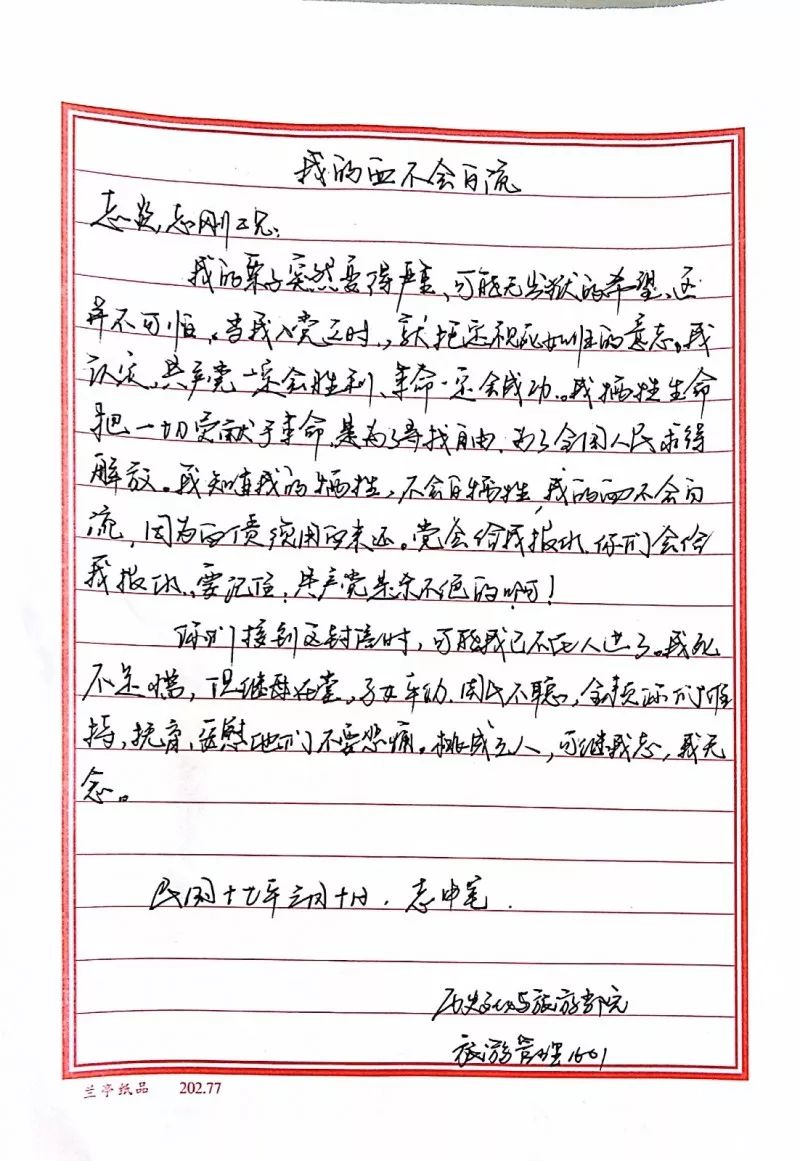 我的血不会白流
志炎,志刚二兄:
我的案子突然变得严重、可能无出狱的希望、这
并不可怕。当我入党之时,就抱定视死如归的意志。我
认定,共产党一定会胜利、革命一定会成功。我牺牲生命
把一切贡献于革命,是为了寻找自由,为了全国人民求得
解放。我知道我的牺牲,不会白牺牲,我的血不会白
流,因为血债须用血来还。党会给我报仇,你们会给
我报仇,要记住,共产党是杀不绝的啊!
你们接到这封信时,可能我已不在人世了。我死
不足惜,但继母在堂,子女年幼,周氏不聪,全赖你们维
持,抚育,安慰他们不要悲痛。桃成立人,可继我志,我无
念。
民国十七年三月十日,志申笔.
历史文化与旅游学院
旅游管理1601
兰亭纸品 202.77